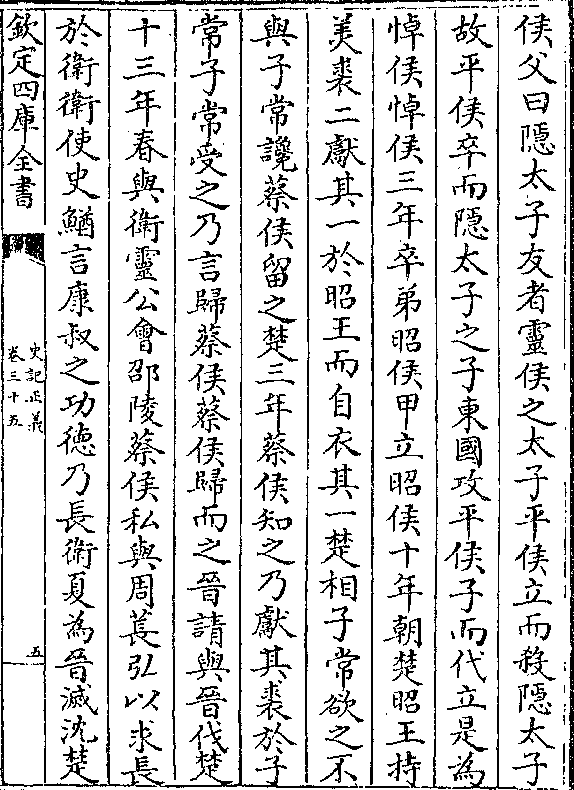 侯父曰隱太子友者靈侯之太子平侯立而殺隱太子
故平侯卒而隱太子之子東國攻平侯子而代立是為
悼侯悼侯三年卒弟昭侯甲立昭侯十年朝楚昭王持
美裘二獻其一於昭王而自衣其一楚相子常欲之不
與子常讒蔡侯留之楚三年蔡侯知之乃獻其裘於子
常子常受之乃言歸蔡侯蔡侯歸而之晉請與晉伐楚
十三年春與衛靈公會邵陵蔡侯私與周萇弘以求長
於衛衛使史鰌言康叔之功德乃長衛夏為晉滅沈楚
欽定四庫全書
史記正義
卷三十五
五